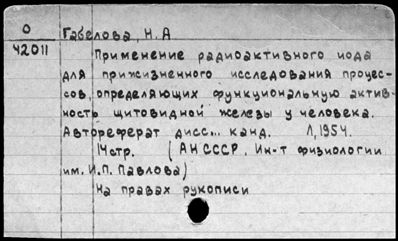 О Габелова, Н.А
42011 Применение радиоактивного иода
для прижизненного исследования процес-
сов, определяющих функциональную актив-
ность щитовидной железы у человека.
Автореферат дисс... канд. Л, 1954.
14стр. (АН СССР. Ин-т физиологии
им. И.П. Павлова)
На правах рукописи